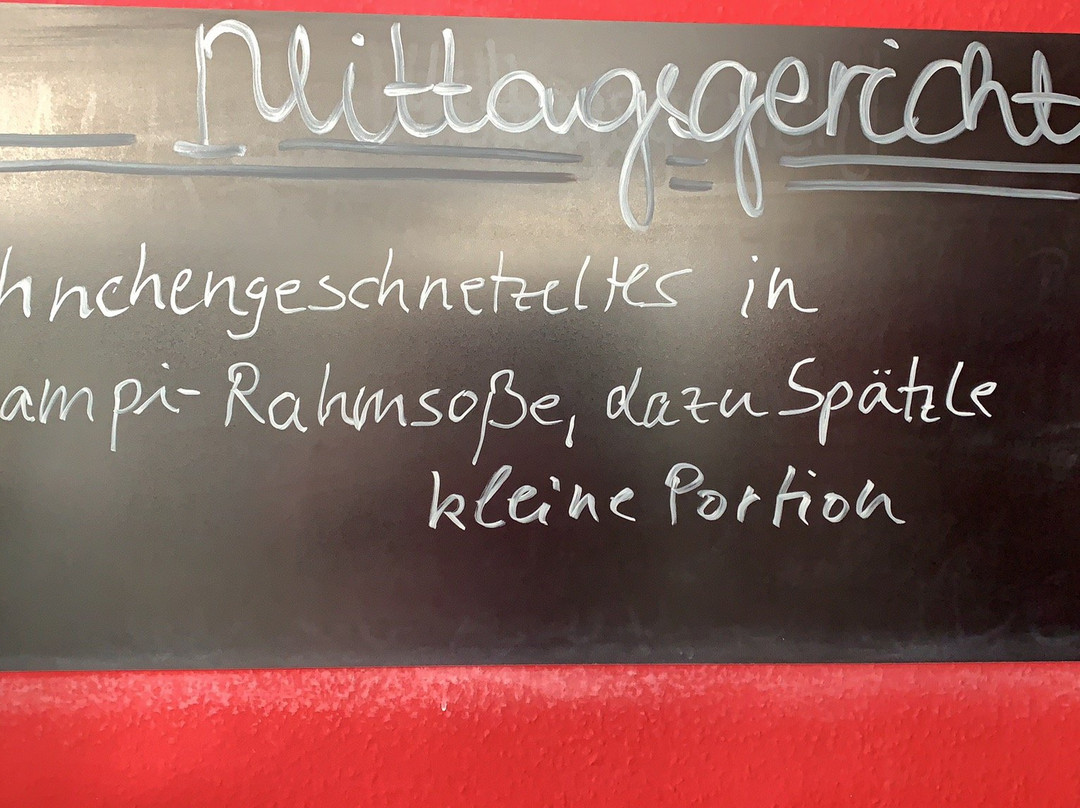 Mittagsgericht
hnchengeschnetzeltes in
ampi-Rahmsoße, dazu Spätzle
kleine Portion